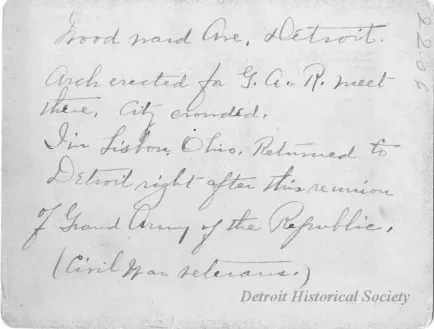 Wood ward Ave, Detroit.
Arch erected for G. A. R. meet
there, City crowded.
I'm Lisbon, Ohio. Returned to
Detroit right after this reunion
of Grand Army of the Republic.
(Civil War veterans.)
2206
Detroit Historical Society